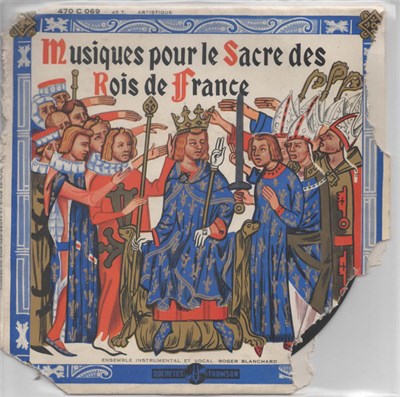 470 C 069 45 T. ARTISTIQUE
Musiques pour le Sacre des
Rois de France
ENSEMBLE INSTRUMENTAL ET VOCAL ROGER BLANCHARD
DUCRETET THOMSON